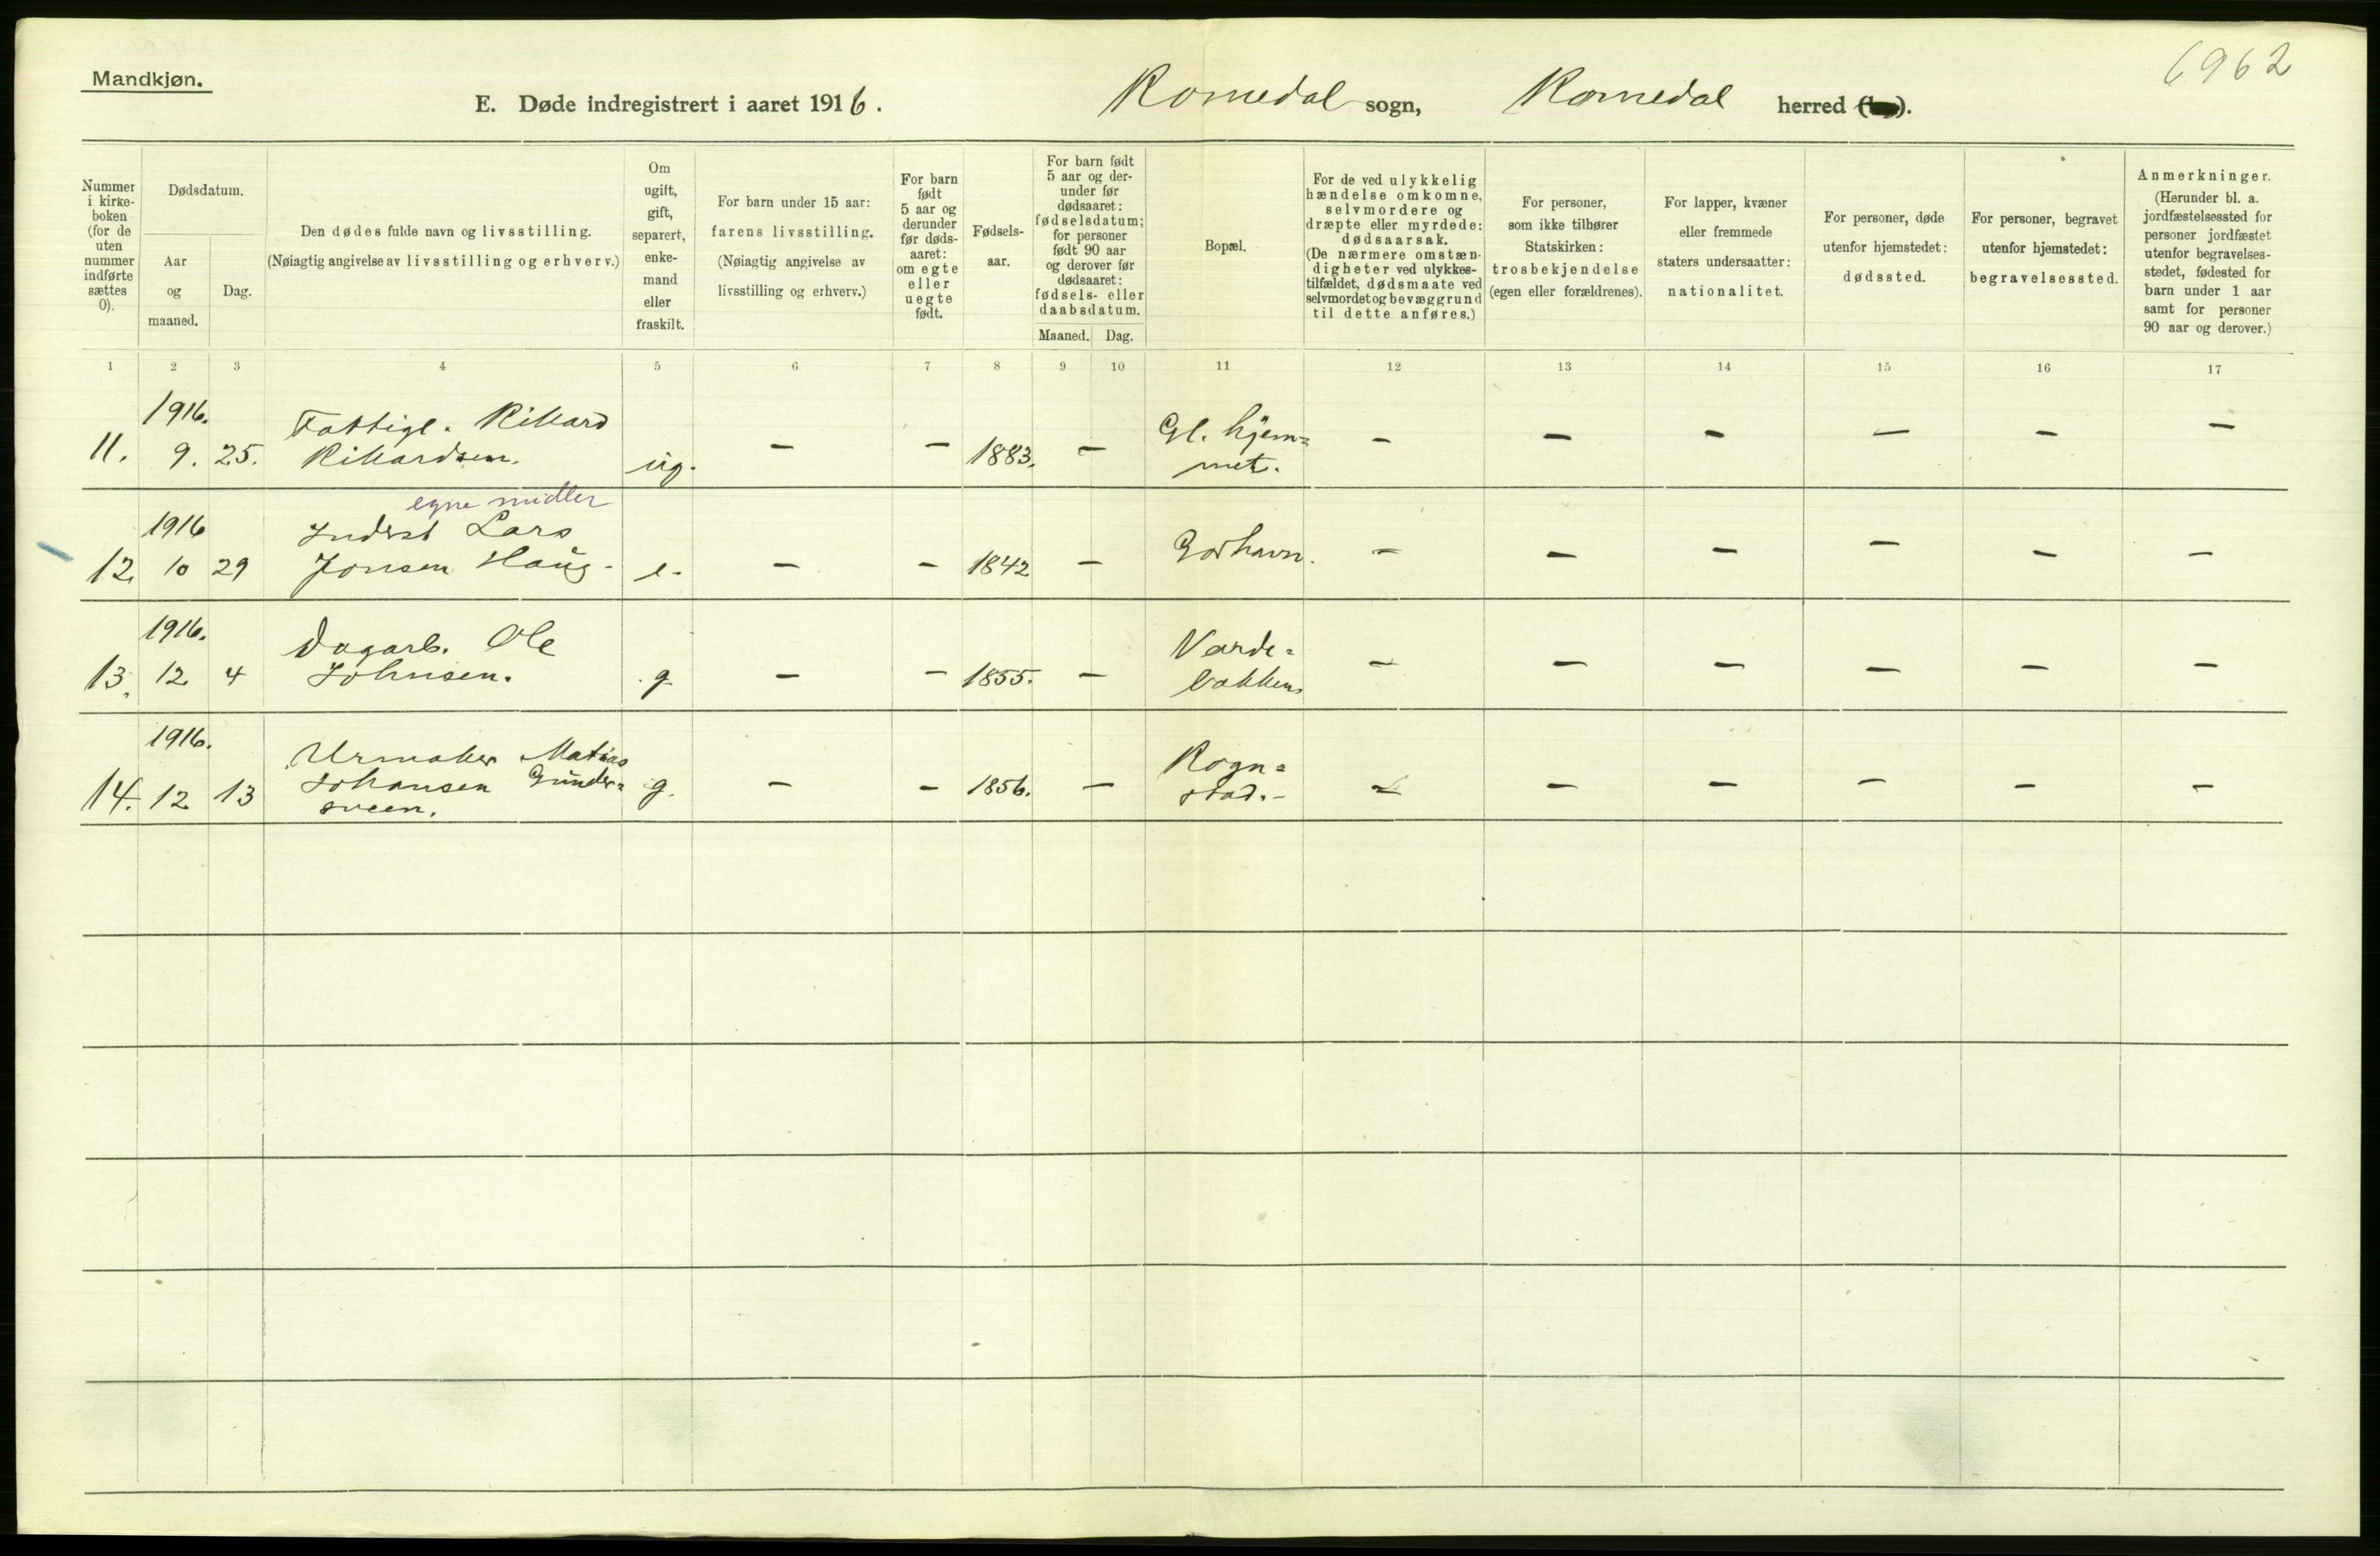 6962
Mandkjøn.
E. Døde indregistrert i aaret 1916. Romedal sogn, Romedal herred
Nummer i kirke-boken (for de uten nummer indførte sættes 0).
Dødsdatum.
Aar og maaned.
Dag.
Den dødes fulde navn og livsstilling.
(Nøiagtig angivelse av livsstilling og erhverv.)
Om ugift, gift, separert, enke-mand eller fraskilt.
For barn under 15 aar: farens livsstilling. (Nøiagtig angivelse av livsstilling og erhverv.)
For barn født 5 aar og derunder før døds-aaret: om egte eller uegte født.
Fødsels-aar.
For barn født 5 aar og der-under før dødsaaret: fødselsdatum; for personer født 90 aar og derover før dødsaaret: fødsels- eller daabsdatum.
Maaned. Dag.
Bopæl.
For de ved ulykkelig hændelse omkomne, selvmordere og dræpte eller myrdede: dødsaarsak. (De nærmere omstæn-digheter ved ulykkes-tilfældet, dødsmaate ved selvmordet og bevæggrund til dette anføres.)
For personer, som ikke tilhører Statskirken: trosbekjendelse (egen eller forældrenes).
For lapper, kvæner eller fremmede staters undersaatter: nationalitet.
For personer, døde utenfor hjemstedet: dødssted.
For personer, begravet utenfor hjemstedet: begravelsessted.
Anmerkninger. (Herunder bl. a. jordfæstelsessted for personer jordfæstet utenfor begravelses-stedet, fødested for barn under 1 aar samt for personer 90 aar og derover.)
1 2 3 4 5 6 7 8 9 10 11 12 13 14 15 16 17
1916. Fattigl. Rikard Gl. hjem=
11. 9. 25. Rikardsen. ug. - - 1883. - met. - - - - - -
egne midler
1916 Inderst Lars
12. 10 29 Jonsen Haug. e. - - 1842 - Godhavn. - - - - - -
1916. Dagarb. Ole Varde=
13. 12 4 Johnsen. g. - - 1855. - bakken - - - - - -
1916. Urmaker Matias Rogn=
14. 12 13 Johansen Gunder= g. - - 1856. - stad. - - - - - -
sveen.